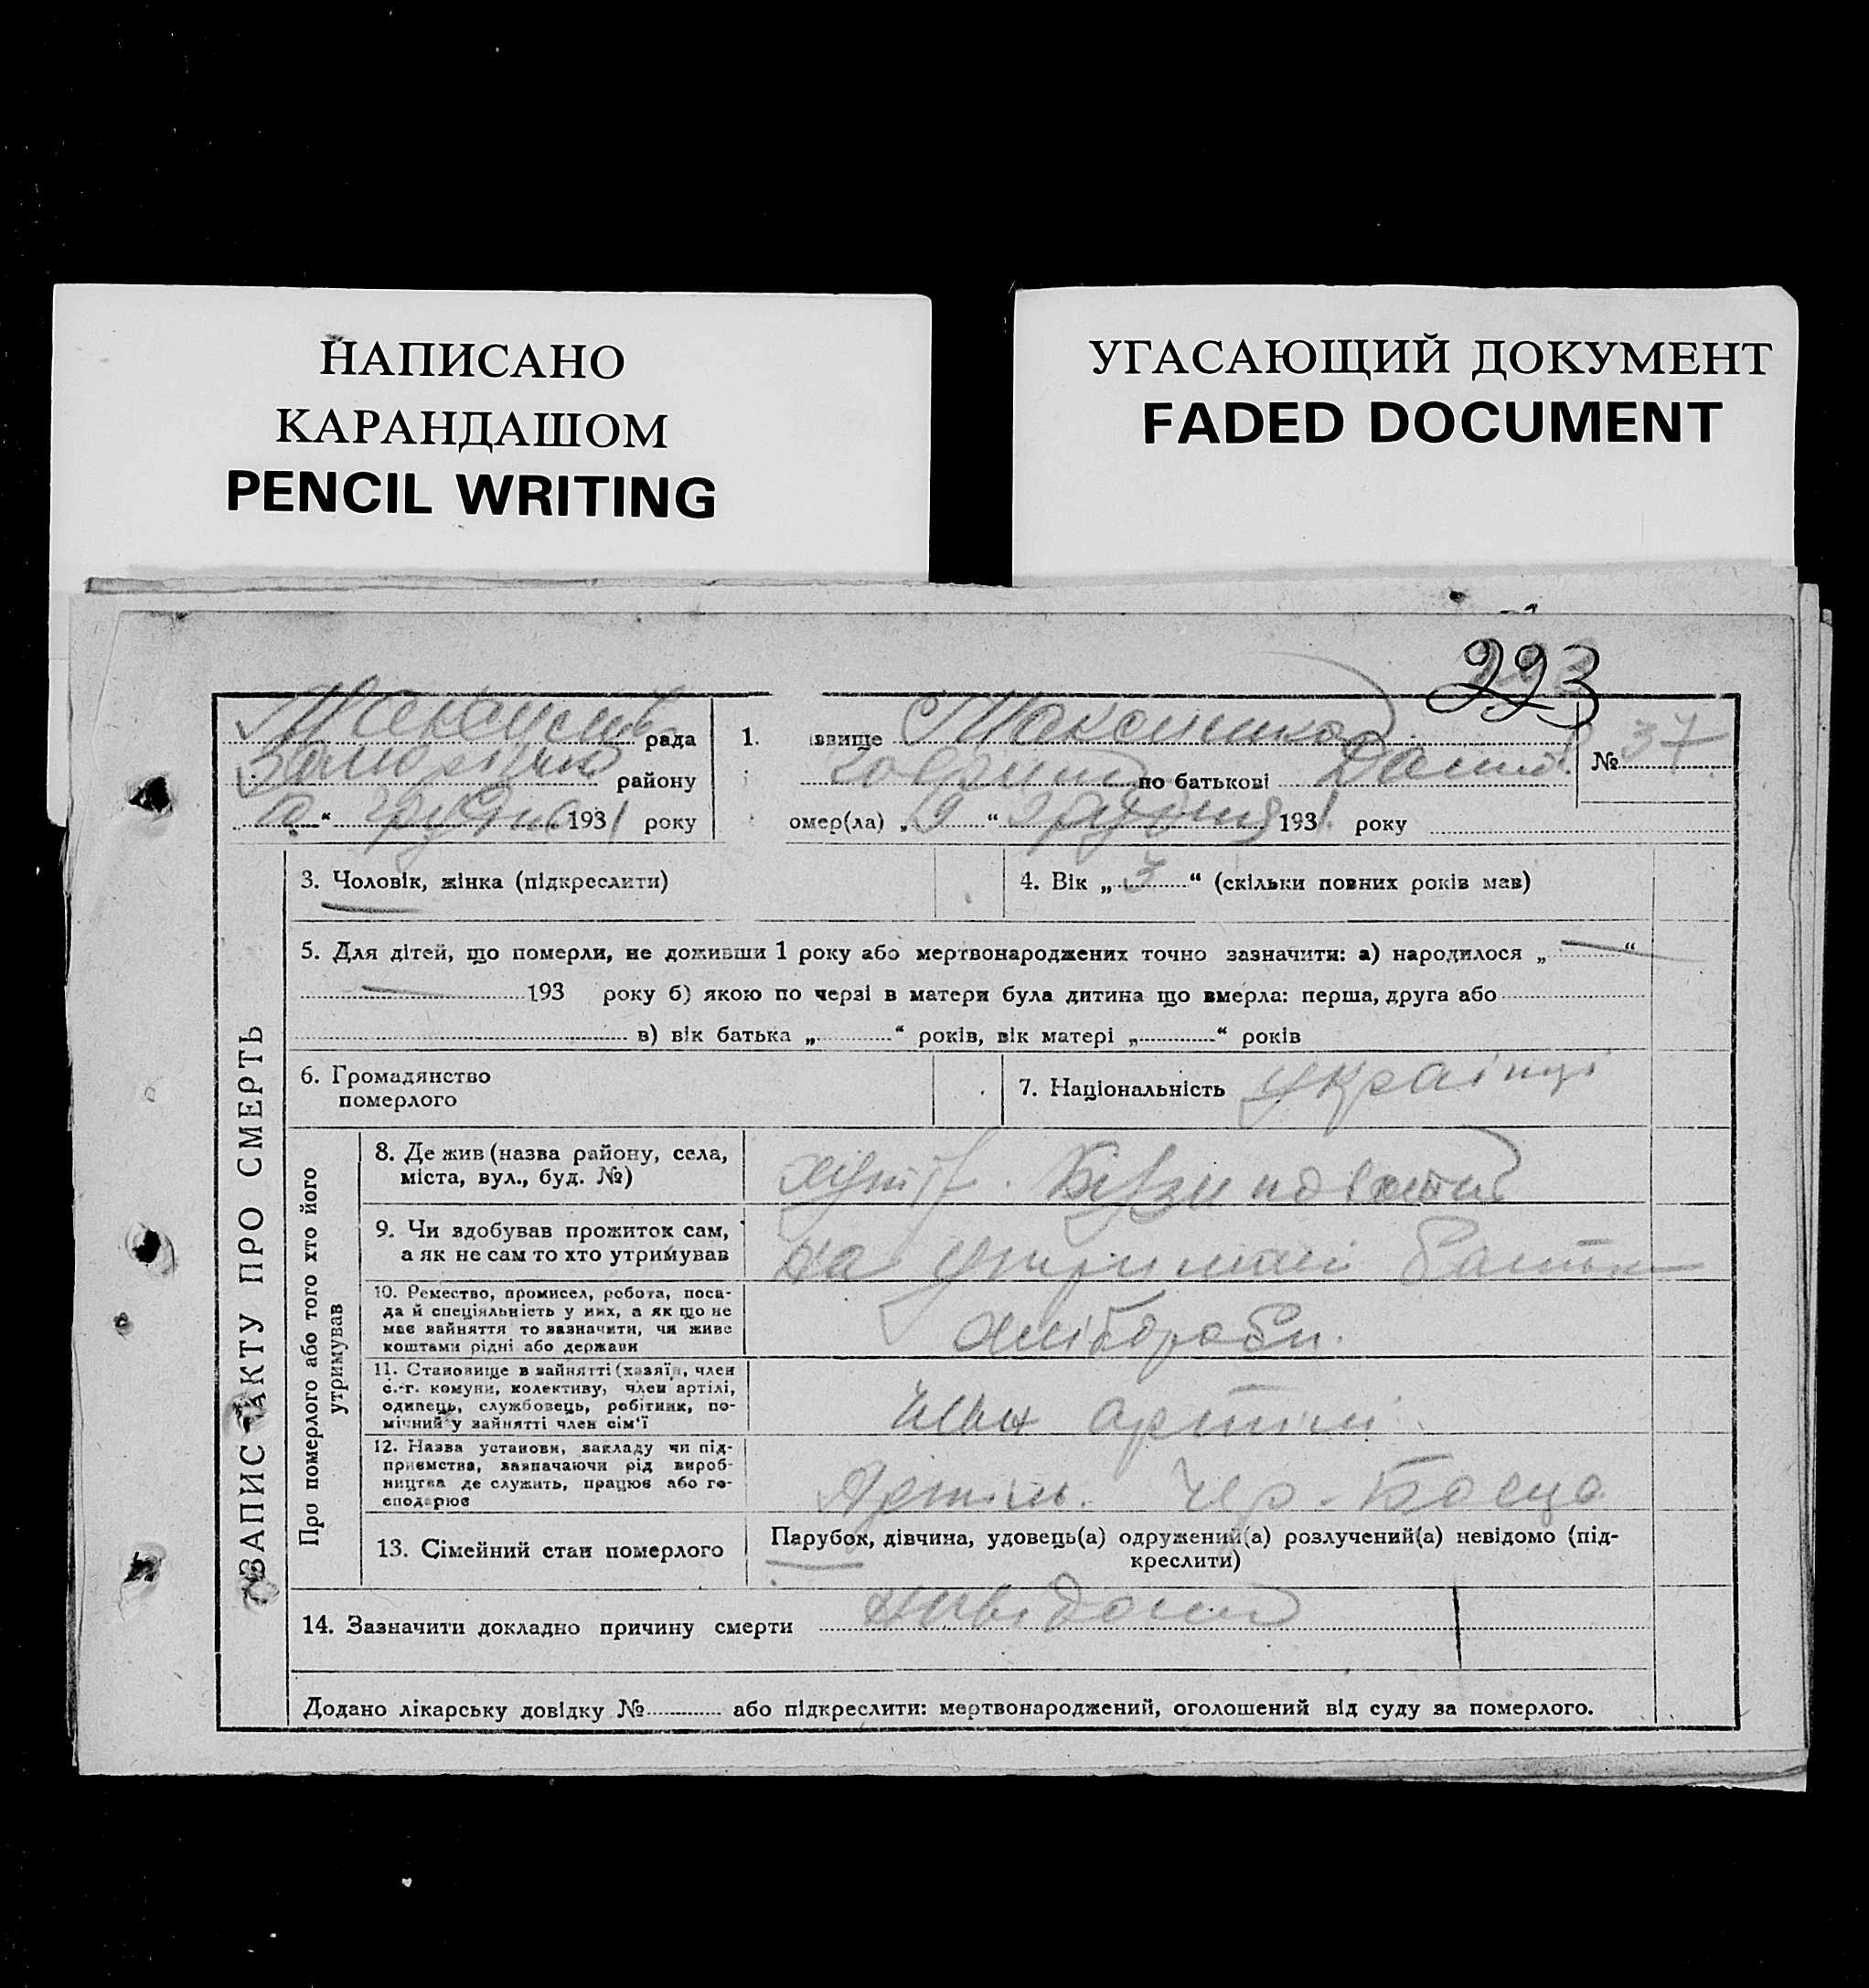 НАПИСАНО
КАРАНДАШОМ
PENCIL WRITING
УГАСАЮЩИЙ ДОКУМЕНТ
FADED DOCUMENT
293
рада
району
1931 року
1. ввище Максименко
по батькові Данил.
№ 37
омер(ла) „9“ грудня 1931 року
3. Чоловік, жінка (підкреслити)
4. Вік „3“ (скільки повних років мав)
5. Для дітей, що померли, не доживши 1 року або мертвонароджених точно зазначити: а) народилося „—“
— 193 року б) якою по черзі в матери була дитина що вмерла: перша, друга або
в) вік батька „ “ років, вік матері „ “ років
6. Громадянство
померлого
7. Національність україн
ЗАПИС АКТУ ПРО СМЕРТЬ
Про померлого або того хто його
утримував
8. Де жив (назва району, села,
міста, вул., буд. №)
хутір
9. Чи здобував прожиток сам,
а як не сам то хто утримував
на утриманні батьки
10. Ремество, промисел, робота, поса-
да й спеціяльність у них, а як що не
має вайняття то вазначити, чи живе
коштами рідні або держави
хлібороби.
11. Становище в вайнятті (хазяїн, член
с.-г. комуни, колективу, член артілі,
одинець, службовець, робітник, по-
мічний у зайнятті член сім'ї
член артілі
12. Назва установи, закладу чи під-
приємства, вазначаючи рід вироб-
ництва де служить, працює або го-
сподарює
Артіль. Чер. Боець
13. Сімейний стан померлого
Парубок, дівчина, удовець(а) одружений(а) розлучений(а) невідомо (під-
креслити)
14. Зазначити докладно причину смерти невідомо
Додано лікарську довідку № або підкреслити: мертвонароджений, оголошений від суду за померлого.